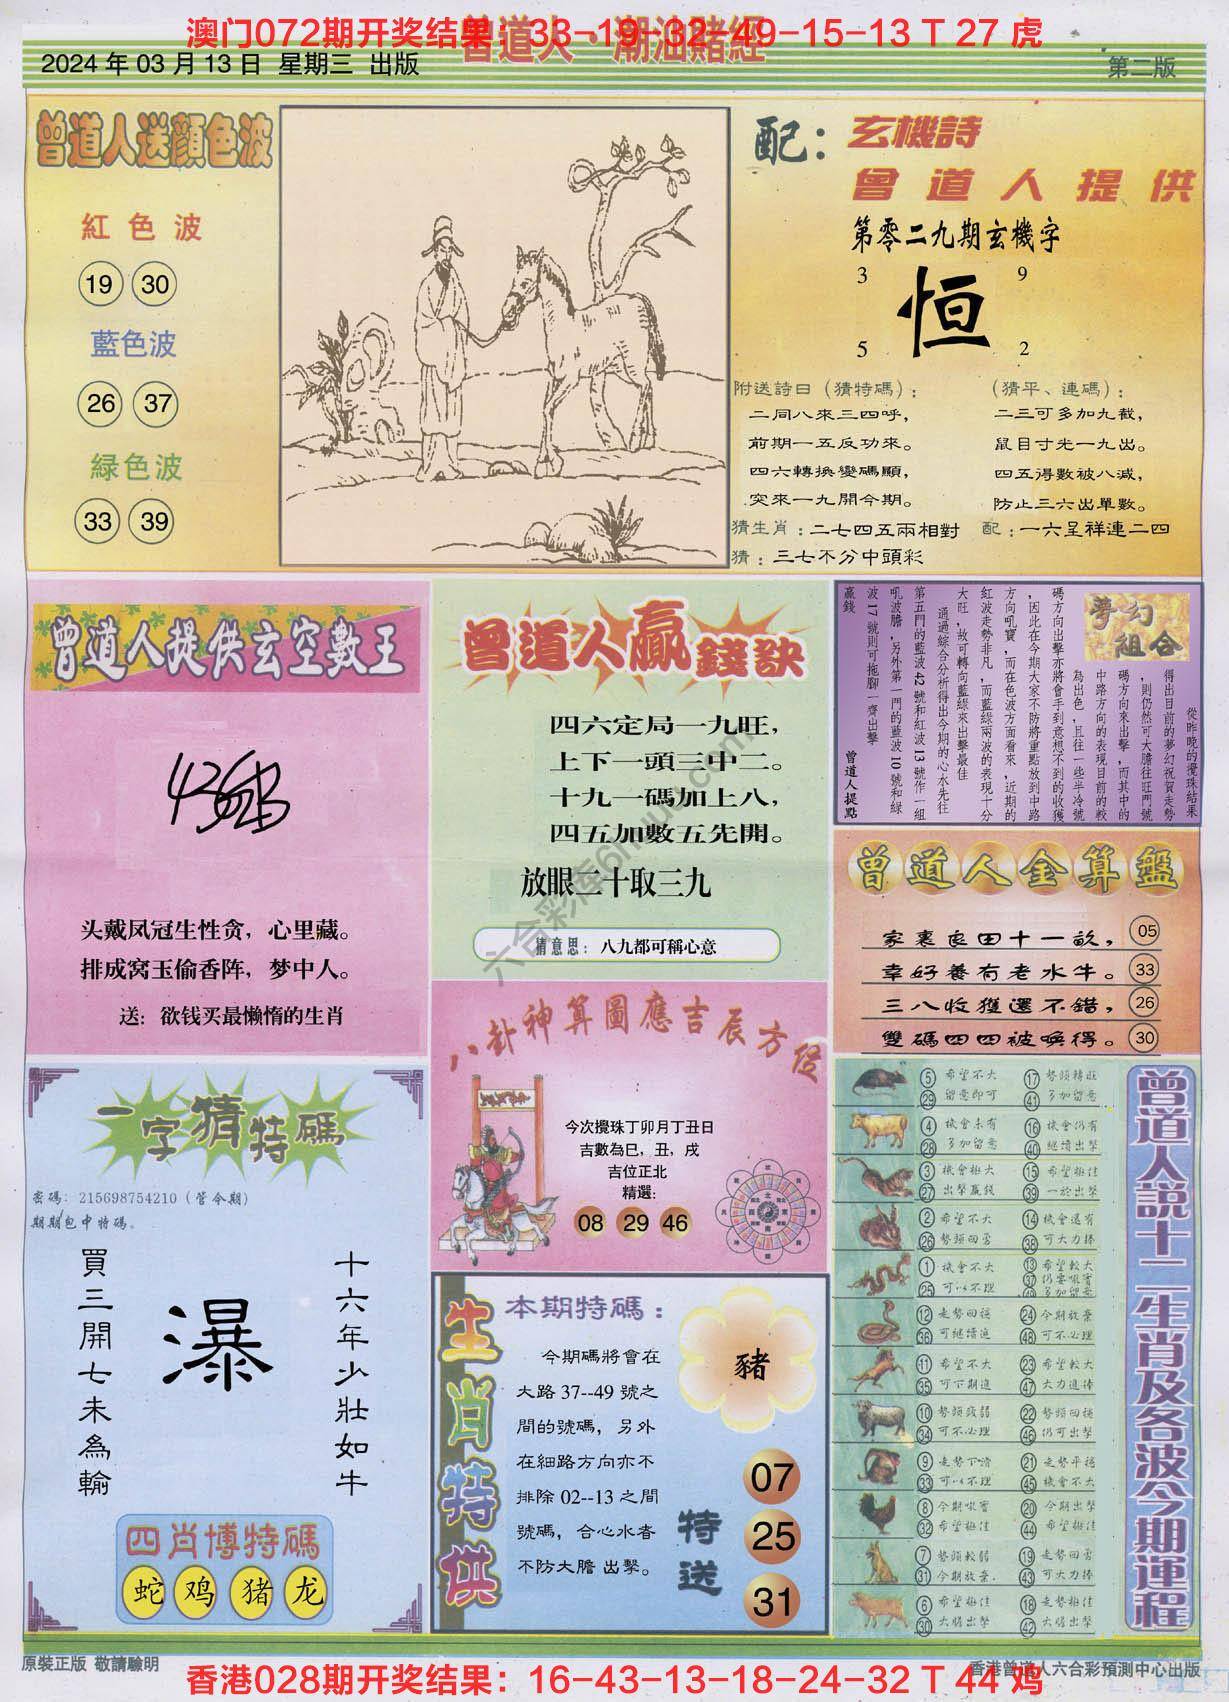 澳门072期开奖结果：33-19-32-49-15-13 T 27 虎
曾道人·潮汕賭經
2024 年 03 月 13 日 星期三 出版
第二版
曾道人送顏色波
紅色波
19 30
藍色波
26 37
緑色波
33 39
配：玄機詩
曾道人提供
第零二九期玄機字
3 9
恒
5 2
附送詩曰（猜特碼）：
二同八來三四呼，
前期一五反功來。
四六轉換變碼顯，
突來一九開今期。
（猜平、連碼）：
二三可多加九截，
鼠目寸光一九出。
四五得數被八減，
防止三六出單數。
猜生肖：二七四五兩相對 配：一六呈祥連二四
猜：三七不分中頭彩
曾道人提供玄空數王
头戴凤冠生性贪，心里藏。
排成窝玉偷香阵，梦中人。
送：欲钱买最懒惰的生肖
曾道人贏錢訣
四六定局一九旺，
上下一頭三中二。
十九一碼加上八，
四五加數五先開。
放眼二十取三九
猜意思：八九都可稱心意
夢幻組合
從昨晚的攪珠結果
得出目前的夢幻祝賀走勢
，則仍然可大膽往旺門號
碼方向來出擊，而其中的
中路方向的表現目前的較
為出色，且往一些半冷號
碼方向出擊亦將會手到意想不到的收獲
，因此在今期大家不防將重點放到中路
方向吼寶，而在色波方面看來，近期的
紅波走勢非凡，而藍綠兩波的表現十分
大旺，故可轉向藍綠來出擊最佳
通過綜合分析得出今期的心水先往
第五門的藍波 42 號和紅波 13 號作一組
吼波膽，另外第一門的藍波 10 號和綠
波 17 號則可拖腳一齊出擊
贏錢
曾道人提點
曾道人金算盤
家裏良田十一畝， 05
幸好養有老水牛。 33
三八收獲還不錯， 26
雙碼四四被喚得。 30
一字猜特碼
密碼：215698754210（管今期）
期期包中特碼。
十六年少壯如牛
瀑
買三開七未為輸
四肖博特碼
蛇 鸡 猪 龙
八卦神算圖應吉辰方位
今次攪珠丁卯月丁丑日
吉數為巳，丑，戌
吉位正北
精選:
08 29 46
生肖特供
本期特碼：
今期碼將會在
大路 37--49 號之
間的號碼，另外
在細路方向亦不
排除 02--13 之間
號碼，合心水者
不防大膽 出擊。
豬
特送
07
25
31
曾道人説十二生肖及各波今期運程
5 希望不大 17 勢頭轉旺
29 留意即可 41 多加留意
4 機會未有 16 機會仍有
28 多加留意 40 繼續出擊
3 機會極大 15 希望極佳
27 出擊贏錢 39 一於出擊
2 希望不大 14 機會還有
26 勢頭回勇 38 可大力捧
1 機會不大 13 希望較大
25 可以不理 37 仍要吼實
49 多加留意
12 走勢回穩 24 今期放棄
36 可繼續追 48 可不必理
11 希望不大 23 希望較大
35 可下期進 47 大力追捧
10 勢頭疲弱 22 勢頭回穩
34 可不必理 46 仍可出擊
9 走勢下滑 21 走勢平穩
33 可以不理 45 機會不大
8 今期吼實 20 今期出擊
32 希望極佳 44 希望極佳
7 勢頭較弱 19 走勢回勇
31 今期放棄. 43 可大力捧
6 希望極佳 18 走勢極佳
30 大膽出擊 42 大膽出擊
原裝正版 敬請驗明
香港曾道人六合彩預測中心出版
香港028期开奖结果：16-43-13-18-24-32 T 44 鸡